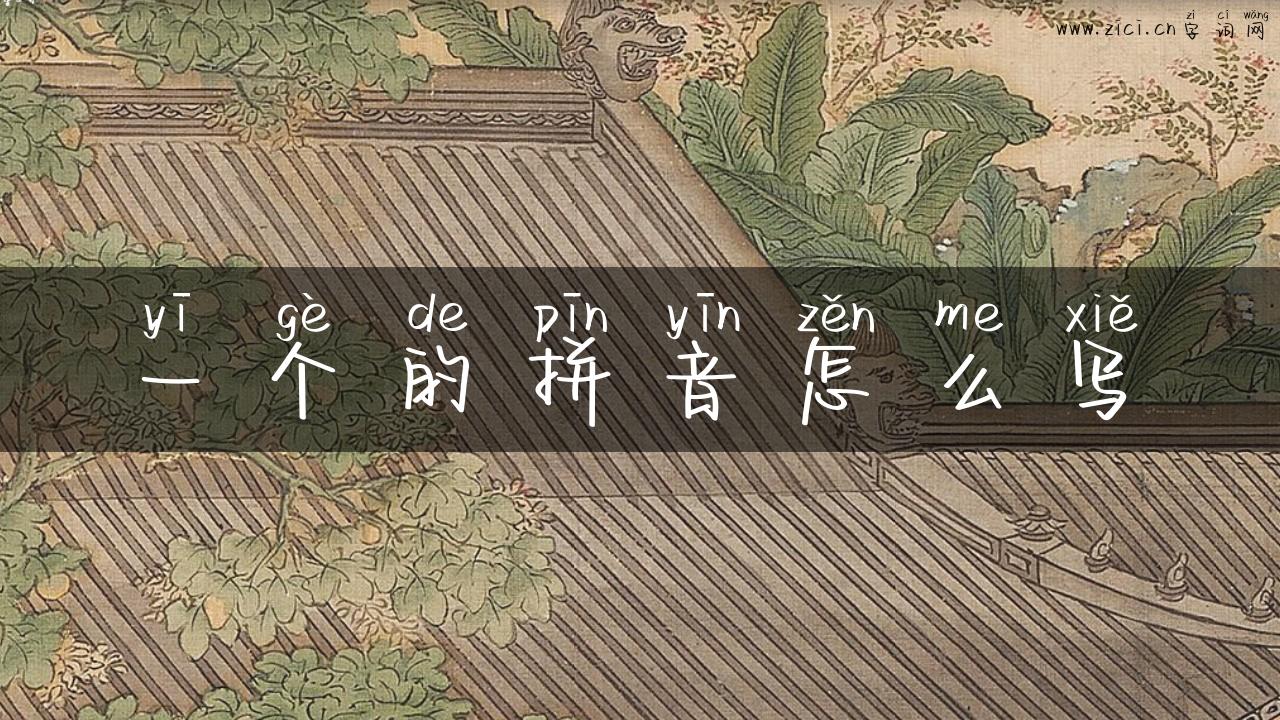 zì cí wǎng
www.zici.cn 字词网
yī gè de pīn yīn zěn me xiě
一个的拼音怎么写